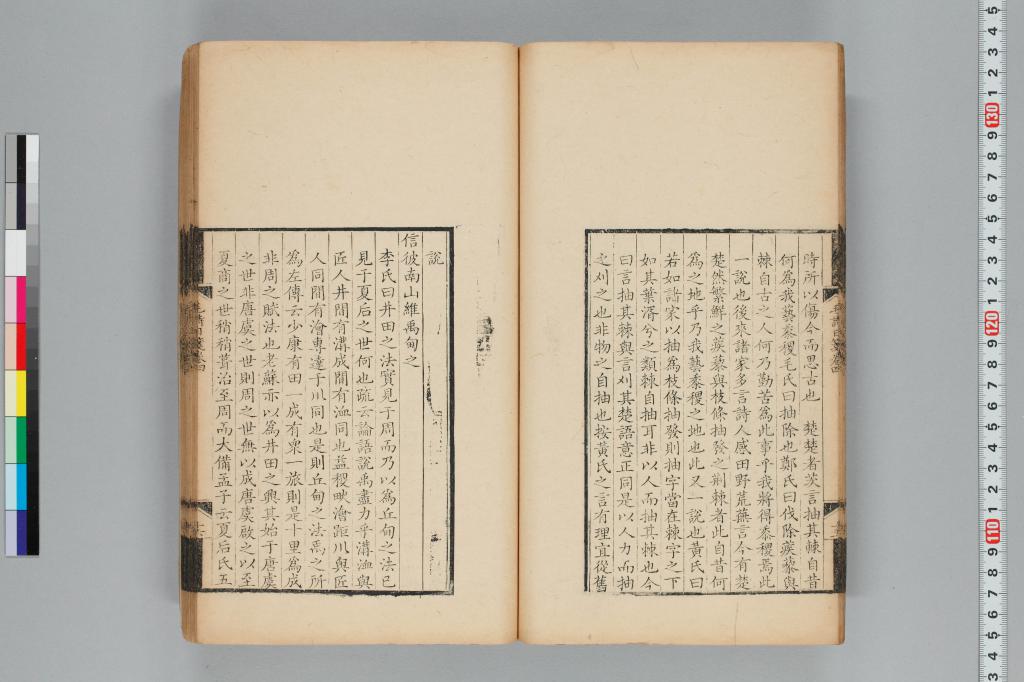 時所以傷今而思古也　楚楚者茨言抽其棘自昔
何為我蓺黍稷毛氏曰抽除也鄭氏曰伐除蒺藜與
棘自古之人何乃勤苦為此事乎我將得黍稷焉此
一說也後來諸家多言詩人感田野荒蕪言今有楚
楚然繁鮮之蒺藜與枝條抽發之荊棘者此自昔何
為之地乎乃我蓺黍稷之地也此又一說也黃氏曰
若如諸家以抽為枝條抽發則抽字當在棘字之下
如其葉湑兮之類棘自抽耳非以人而抽其棘也今
曰言抽其棘與言刈其楚語意正同是以人力而抽
之刈之也非物之自抽也按黃氏之言有理宜從舊
說
信彼南山維禹甸之
李氏曰井田之法實見于周而乃以為丘甸之法已
見于夏后之世何也疏云論語說禹盡力乎溝洫與
匠人井間有溝成間有洫同也益稷畎澮距川與匠
人同間有澮專達于川同也是則丘甸之法禹之所
為左傳云少康有田一成有眾一旅則是十里為成
非周之賦法也老蘇亦以為井田之興其始于唐虞
之世非唐虞之世則周之世無以成唐虞啟之以至
夏商之世稍稍葺治至周而大備孟子云夏后氏五
130
120
110